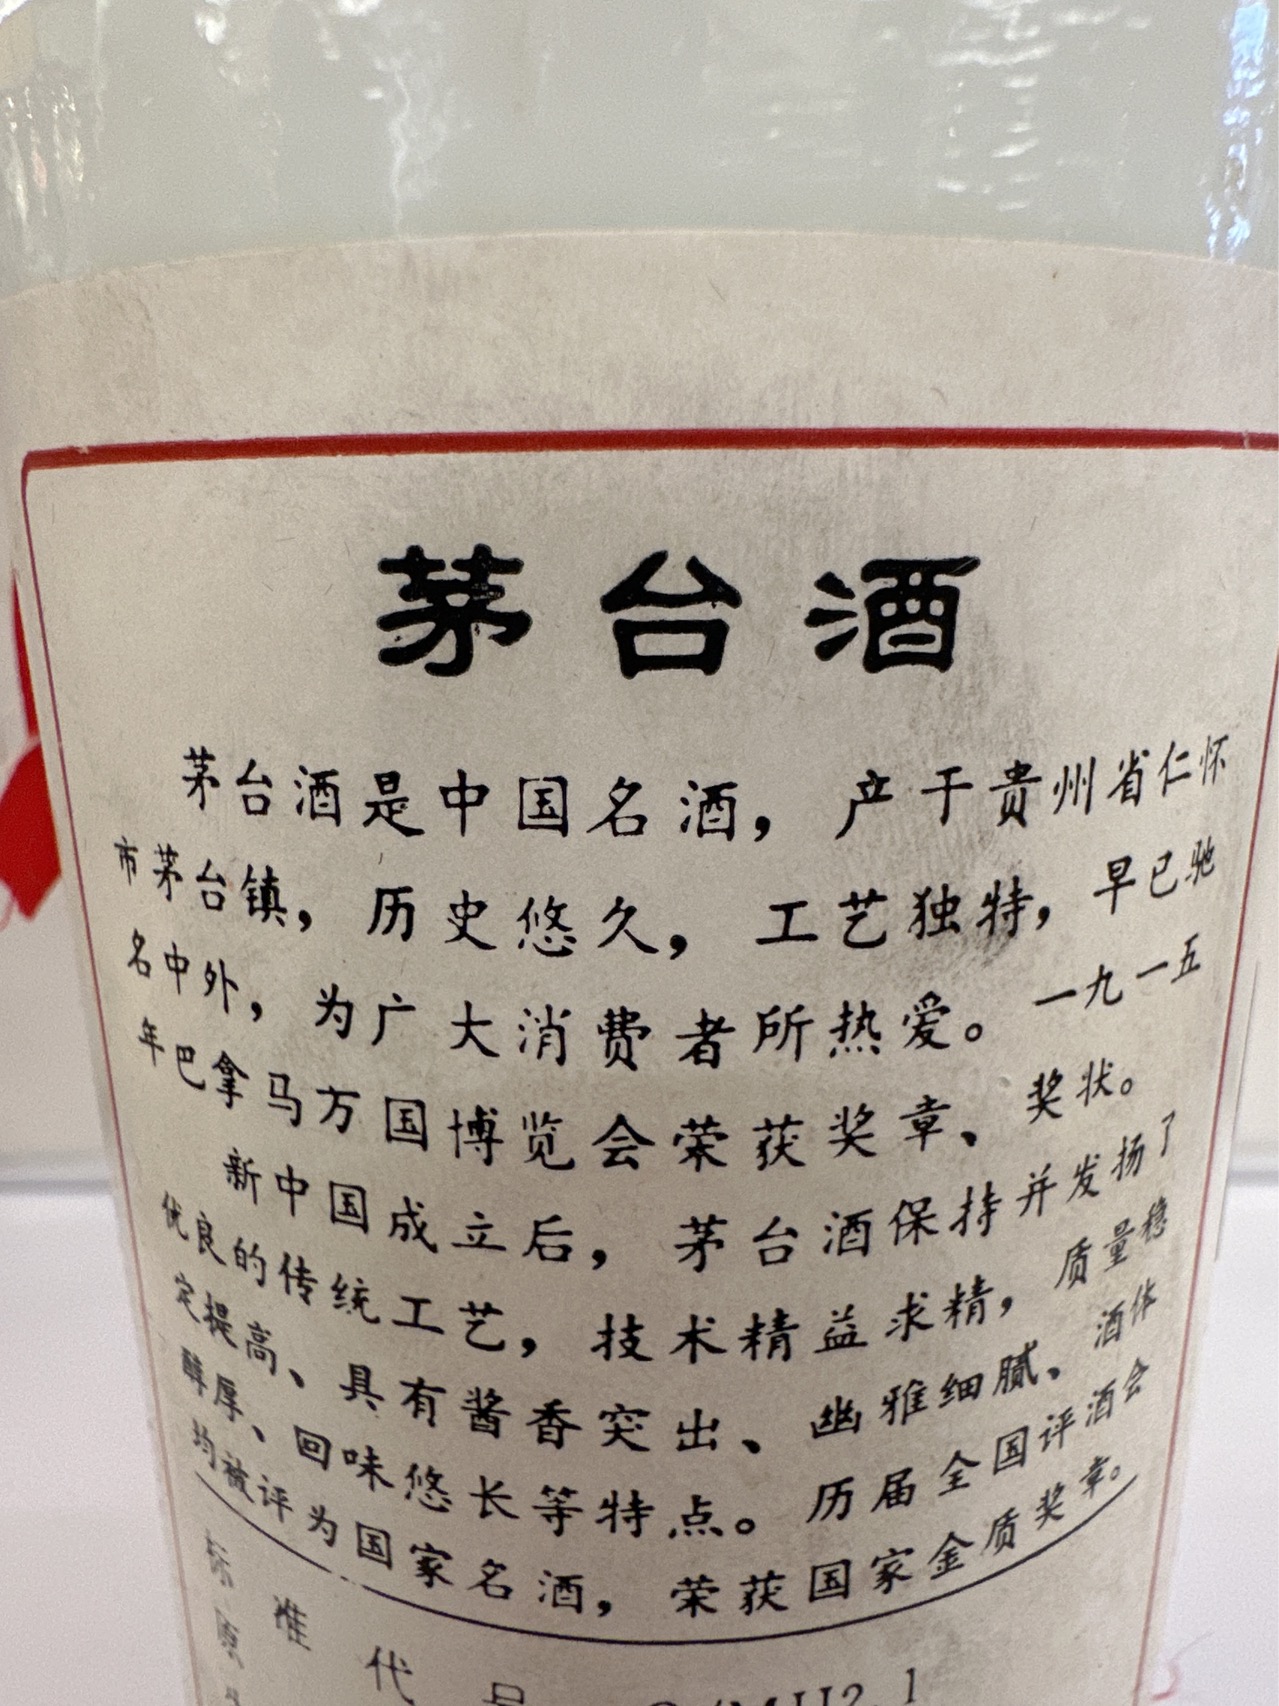 茅台酒
茅台酒是中国名酒，产于贵州省仁怀
市茅台镇，历史悠久，工艺独特，早已驰
名中外，为广大消费者所热爱。一九一五
年巴拿马万国博览会荣获奖章、奖状。
新中国成立后，茅台酒保持并发扬了
优良的传统工艺，技术精益求精，质量稳
定提高、具有酱香突出、幽雅细腻、酒体
醇厚、回味悠长等特点。历届全国评酒会
均被评为国家名酒，荣获国家金质奖章。
标准代号
原